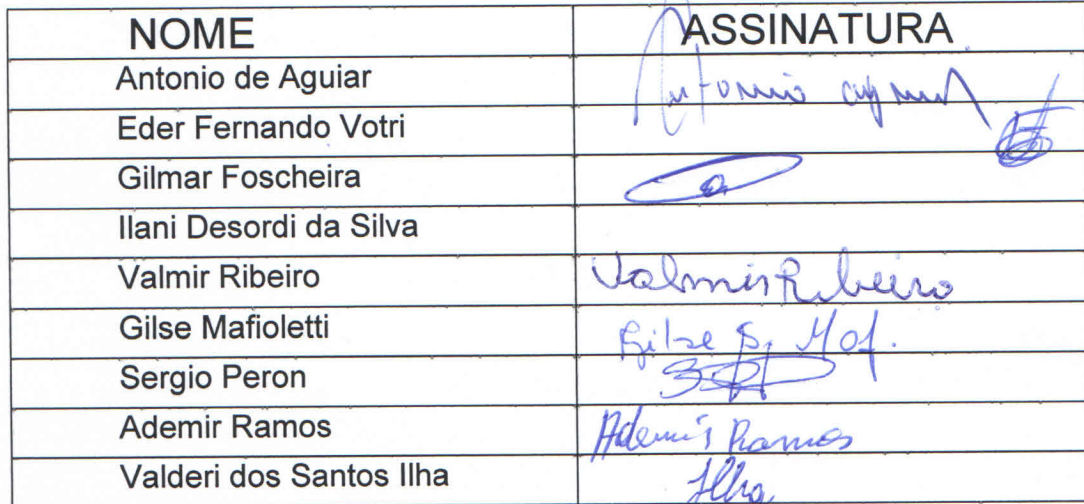 NOME ASSINATURA
Antonio de Aguiar Antonio
Eder Fernando Votri
Gilmar Foscheira
Ilani Desordi da Silva
Valmir Ribeiro Valmir Ribeiro
Gilse Mafioletti Gilse S. Maf.
Sergio Peron
Ademir Ramos Ademir Ramos
Valderi dos Santos Ilha Ilha